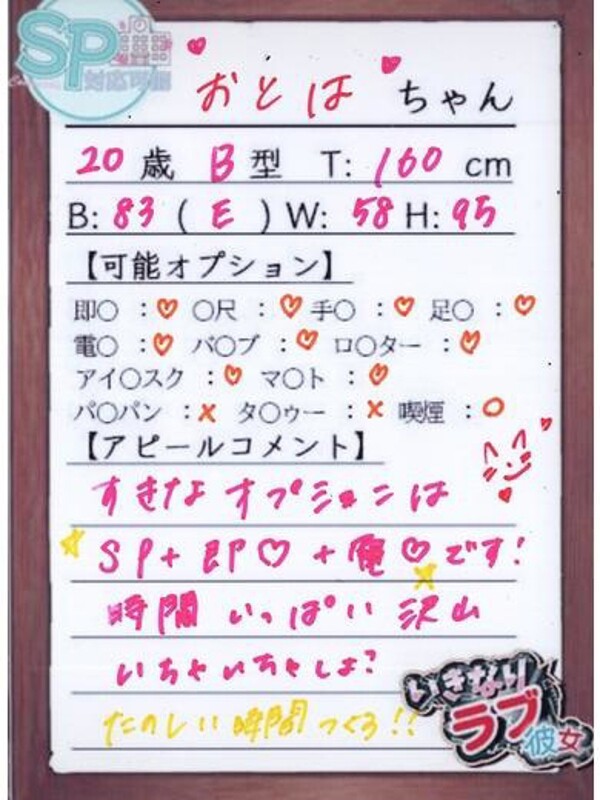 SP
対応可能
おとは ちゃん
20 歳 B 型 T: 160 cm
B: 83 ( E ) W: 58 H: 95
【可能オプション】
即〇 :♡ 〇尺 :♡ 手〇 :♡ 足〇 :♡
電〇 :♡ バ〇ブ :♡ ロ〇ター :♡
アイ〇スク :♡ マ〇ト :♡
パ〇パン :× タ〇ゥー :× 喫煙 :〇
【アピールコメント】
すきなオプションは
SP+即♡+電♡です!
時間いっぱい沢山
いちゃいちゃしよ?
たのしい時間つくろ!!
いきなり
ラブ
彼女